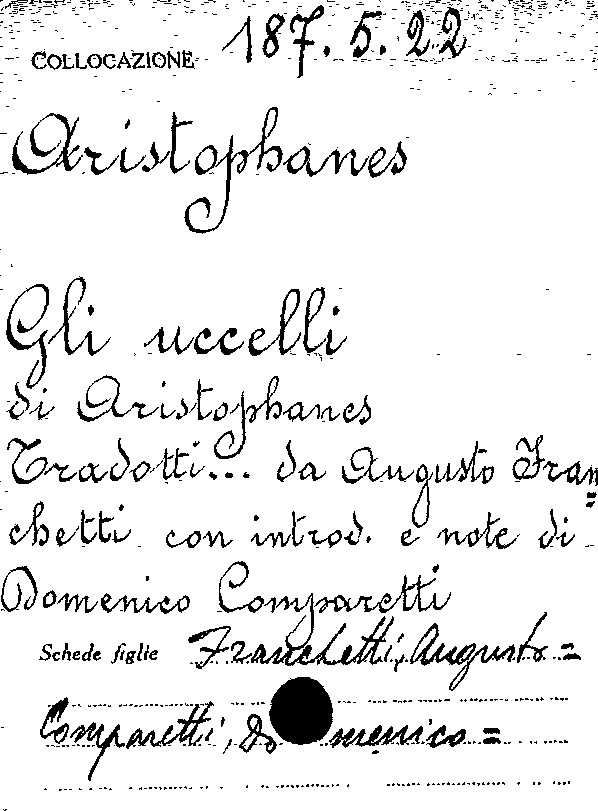 COLLOCAZIONE 187.5.22
Aristophanes
Gli uccelli
di Aristophanes
Tradotti... da Augusto Fran=
chetti con introd. e note di
Domenico Comparetti
Schede figlie Franchetti, Augusto =
Comparetti, Domenico =